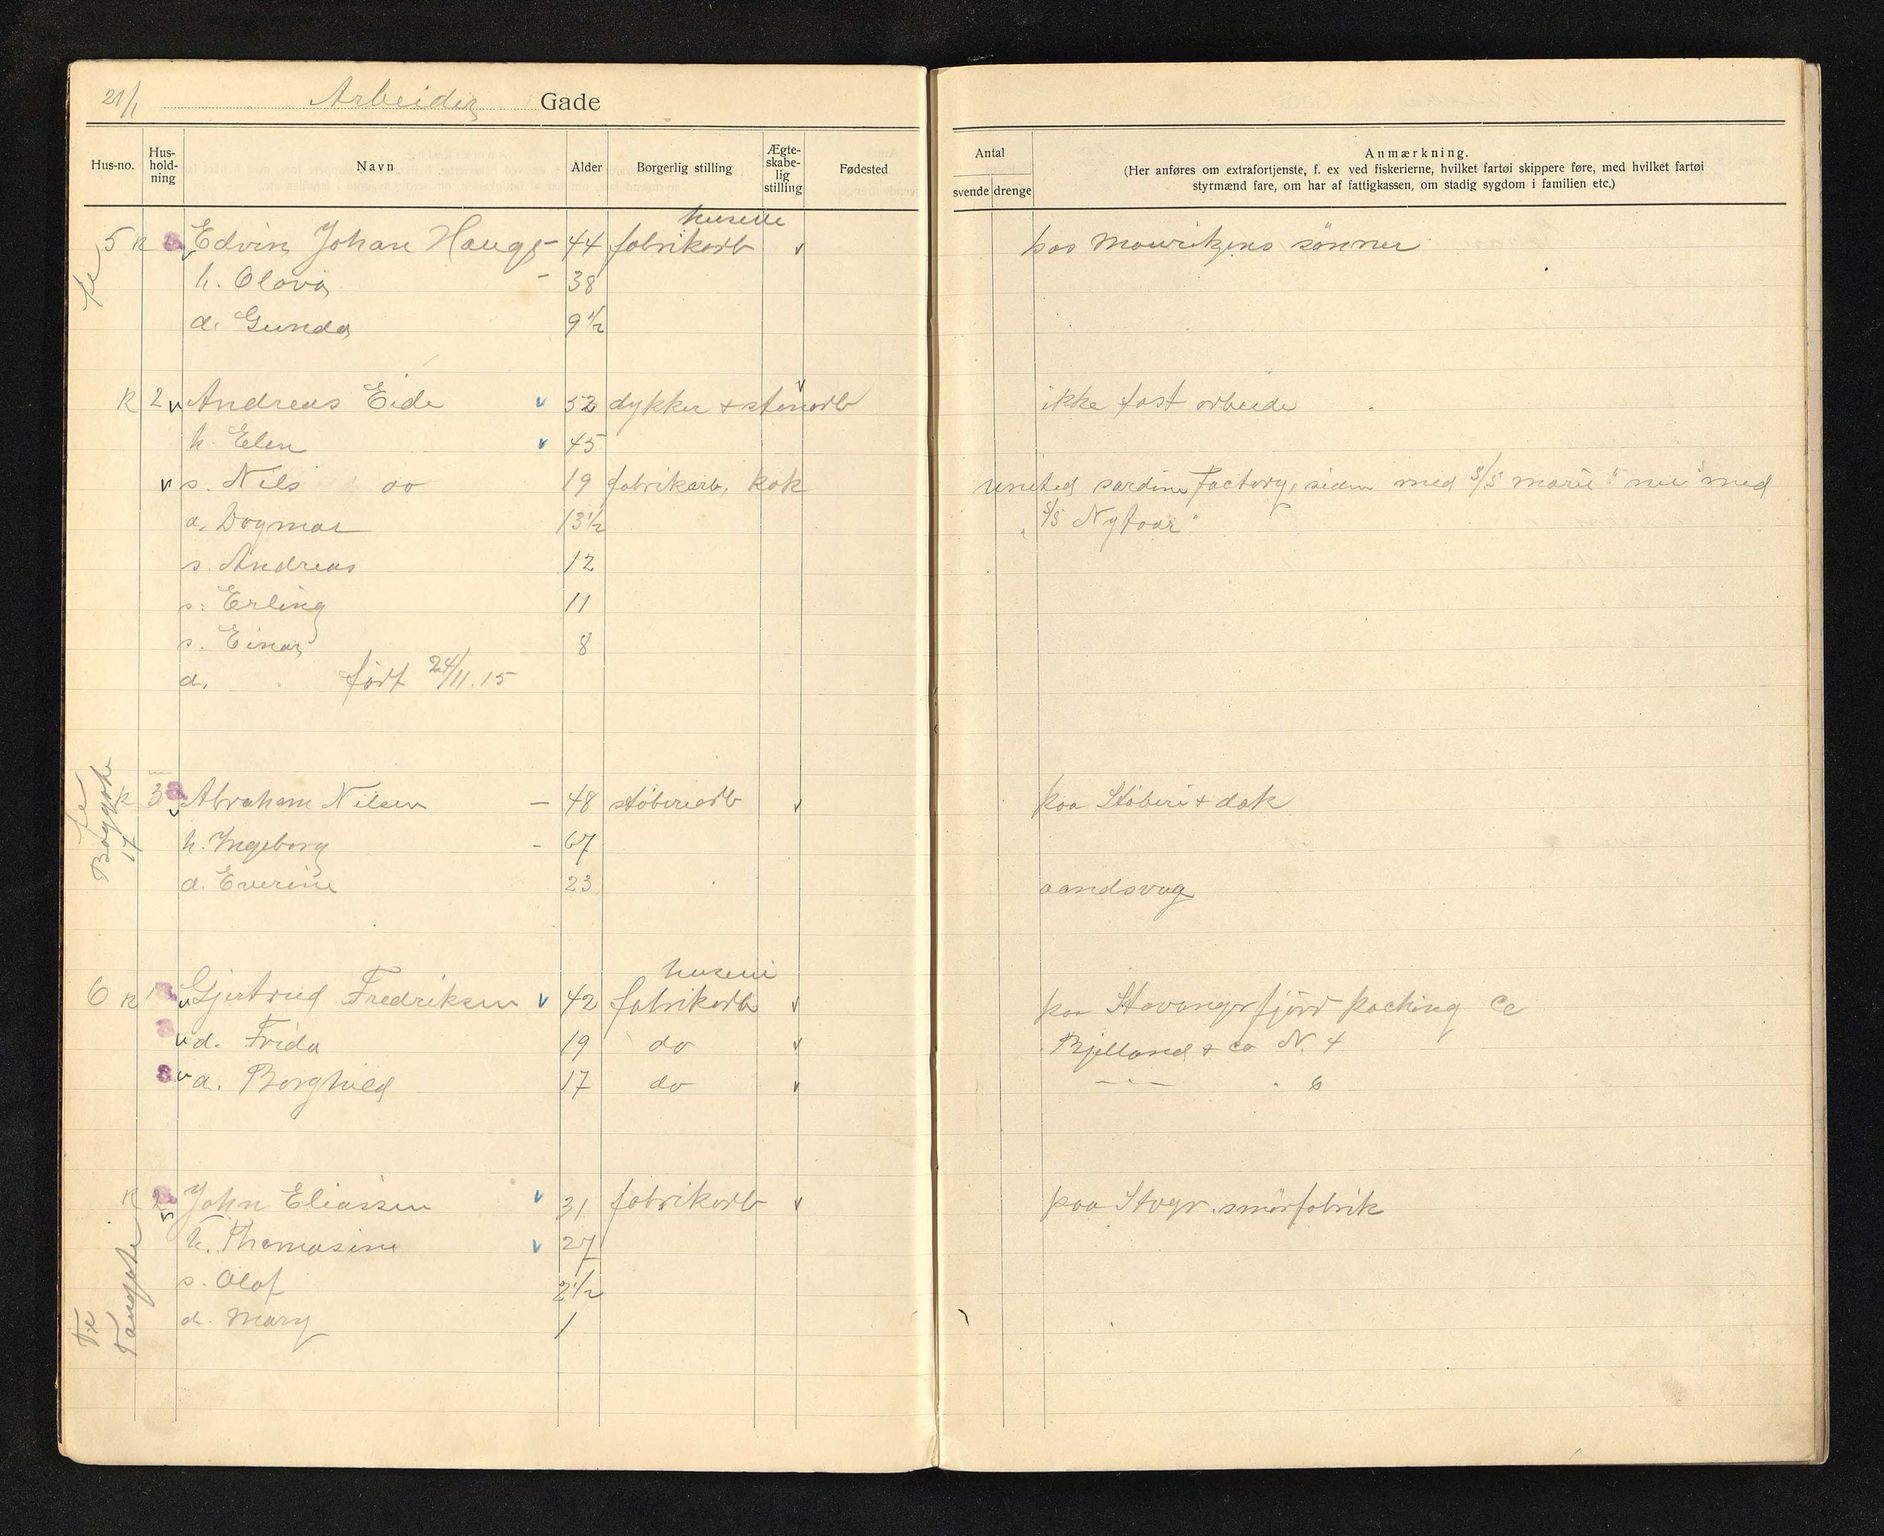 21/1 Arbeider Gade
Hus-no. Hus-hold-ning Navn Alder Borgerlig stilling Ægte-skabe-lig stilling Fødested
Antal svende drenge Anmærkning.
(Her anføres om extrafortjenste, f. ex ved fiskerierne, hvilket fartøi skippere føre, med hvilket fartøi
styrmænd fare, om har af fattigkassen, om stadig sygdom i familien etc.)
huseie
5 k Edvin Johan Hauge – 44 fabrikarb v paa Mouritzens sønner
fe
h. Olava - 38
d. Gunda 9 1/2
k 2 v Andreas Eide v 52 dykker + stenarb v ikke fast arbeide
h. Elen v 45
v s. Nils oo 19 fabrikarb, kok united sardine Factory, siden med S/S marie" nu med
d. Dagmar 13 1/2 „S/S Nyfaar"
s. Andreas 12
s. Erling 11
s. Einar 8
d. født 24/11.15
fe Baggade 17
k 3 v Abraham Nilsen – 48 støberiarb v paa Støberi + dok
h. Ingeborg - 67
d. Everine 23 aandsvag
huseie
6 k 1 v Gjertrud Fredriksen v 42 fabrikarb v paa Stavangerfjord packing Co
v d. Frida 19 do v Bjelland & co N. 4
8 v d. Borghild 17 do v —"— " 6
k 2 v John Eliassen v 31 fabrikarb v paa Stvgr. smørfabrik
h. Thomasine v 27
s. Olaf 2 1/2
d. Mary 1
Fe